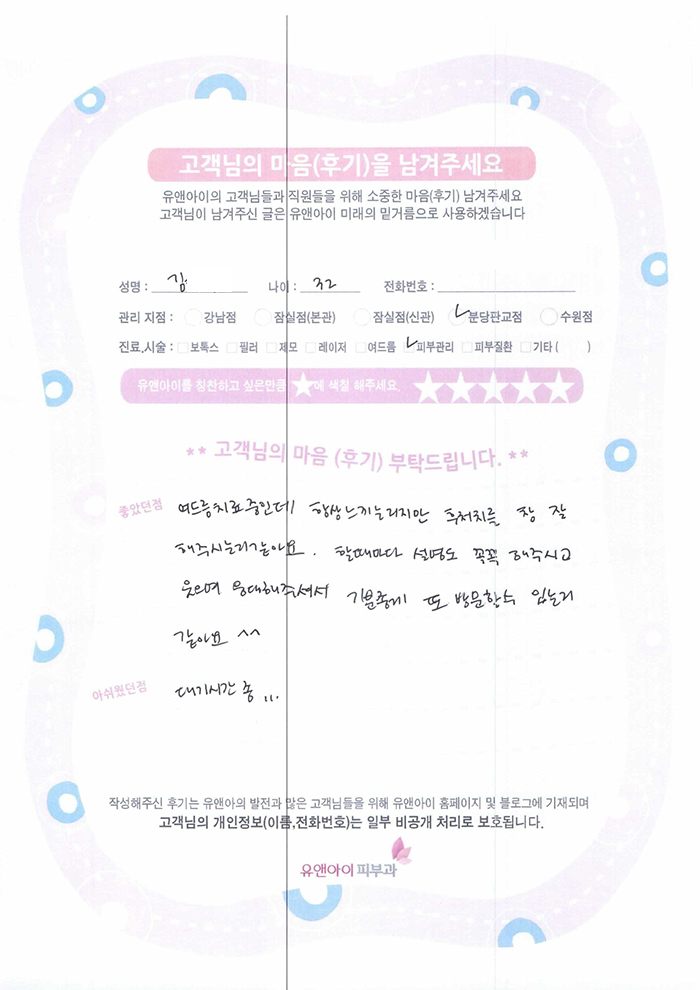 고객님의 마음(후기)을 남겨주세요
유앤아이의 고객님들과 직원들을 위해 소중한 마음(후기) 남겨주세요
고객님이 남겨주신 글은 유앤아이 미래의 밑거름으로 사용하겠습니다
성명 : 김 나이 : 32 전화번호 :
관리 지점 : 강남점 잠실점(본관) 잠실점(신관) 분당판교점 수원점
진료,시술 : 보톡스 필러 제모 레이저 여드름 피부관리 피부질환 기타 ( )
유앤아이를 칭찬하고 싶은만큼 ★에 색칠 해주세요. ★★★★★
** 고객님의 마음 (후기) 부탁드립니다. **
좋았던점 여드름치료중인데 항상느끼는거지만 후처치를 참 잘
해주시는거같아요. 할때마다 설명도 꼭꼭 해주시고
웃으며 응대해주셔서 기분좋게 또 방문할수 있는거
같아요 ^^
아쉬웠던점 대기시간 좀 ...
작성해주신 후기는 유앤아의 발전과 많은 고객님들을 위해 유앤아이 홈페이지 및 블로그에 기재되며
고객님의 개인정보(이름,전화번호)는 일부 비공개 처리로 보호됩니다.
유앤아이 피부과